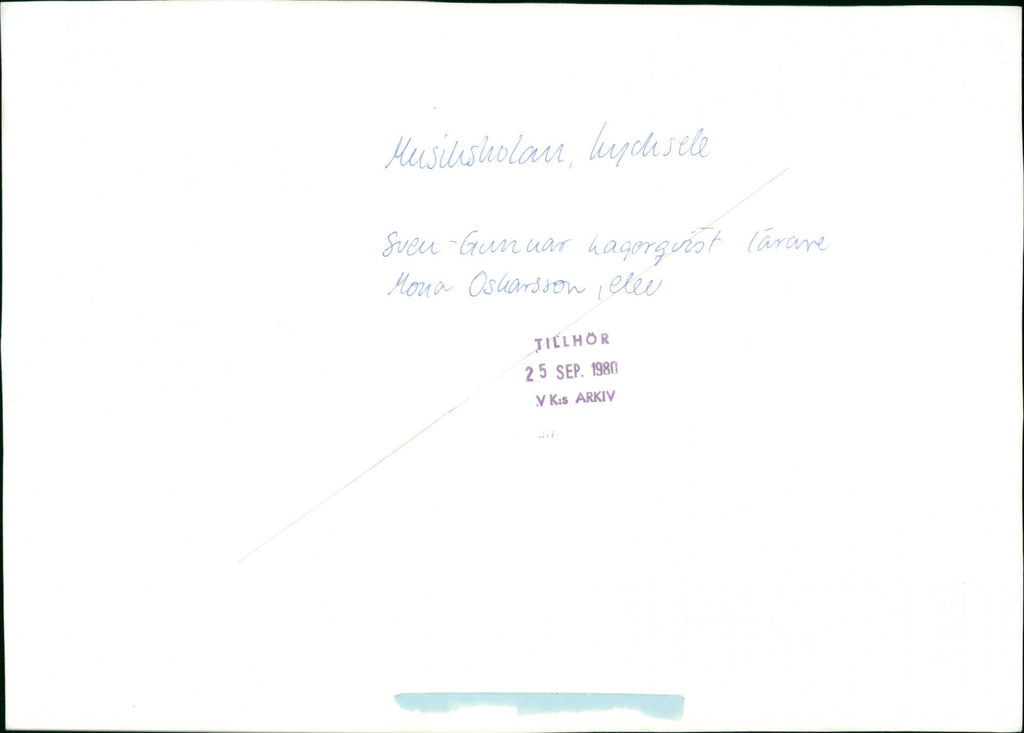 Musikskolan, Lycksele
Sven-Gunnar Lagerqvist lärare
Mona Oskarsson, elev
TILLHÖR
25 SEP. 1980
VK:s ARKIV